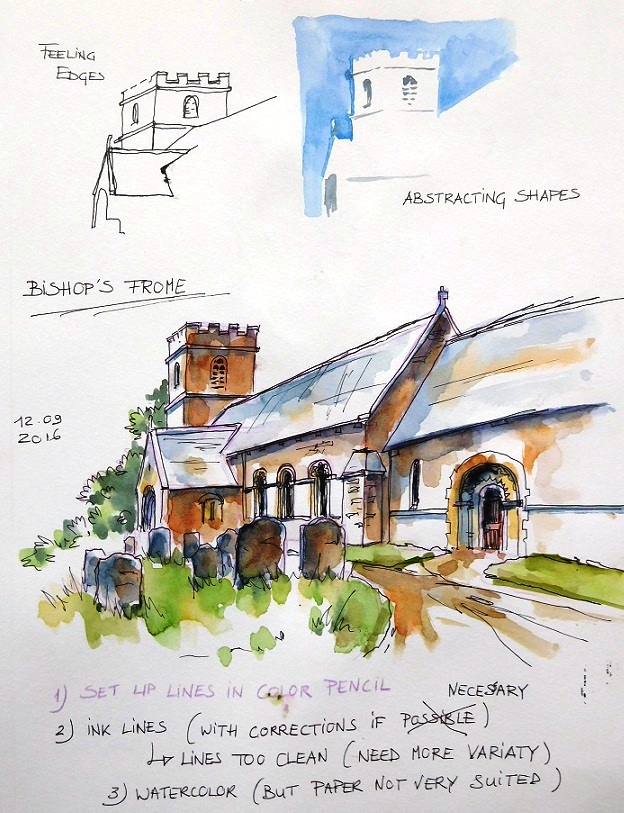 FEELING
EDGES
ABSTRACTING SHAPES
BISHOP'S FROME
12.09
2016
1) SET UP LINES IN COLOR PENCIL
NECESSARY
2) INK LINES (WITH CORRECTIONS IF POSSIBLE)
↳ LINES TOO CLEAN (NEED MORE VARIATY)
3) WATERCOLOR (BUT PAPER NOT VERY SUITED)